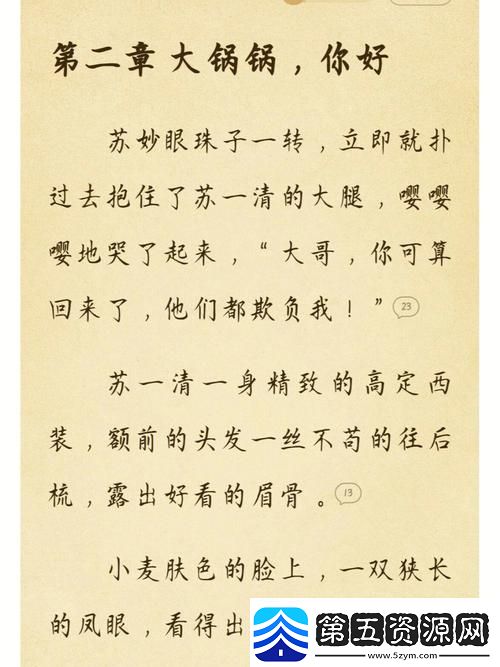 第二章 大锅锅，你好
苏妙眼珠子一转，立即就扑
过去抱住了苏一清的大腿，嘤嘤
嘤地哭了起来，“大哥，你可算
回来了，他们都欺负我！” 23
苏一清一身精致的高定西
装，额前的头发一丝不苟的往后
梳，露出好看的眉骨。 13
小麦肤色的脸上，一双狭长
的凤眼，看得出
第五资源网
www.5zym.com